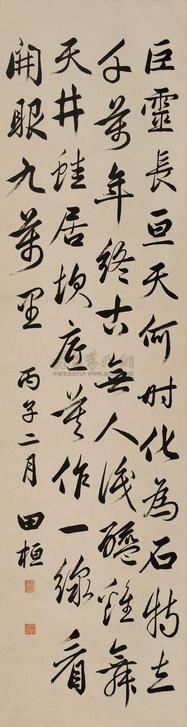 巨靈長亘天何时化為石特立
千萬年終古無人識醯雞舞
天井蛙居坎底莫作一線看
開眼九萬里 丙子二月 田桓